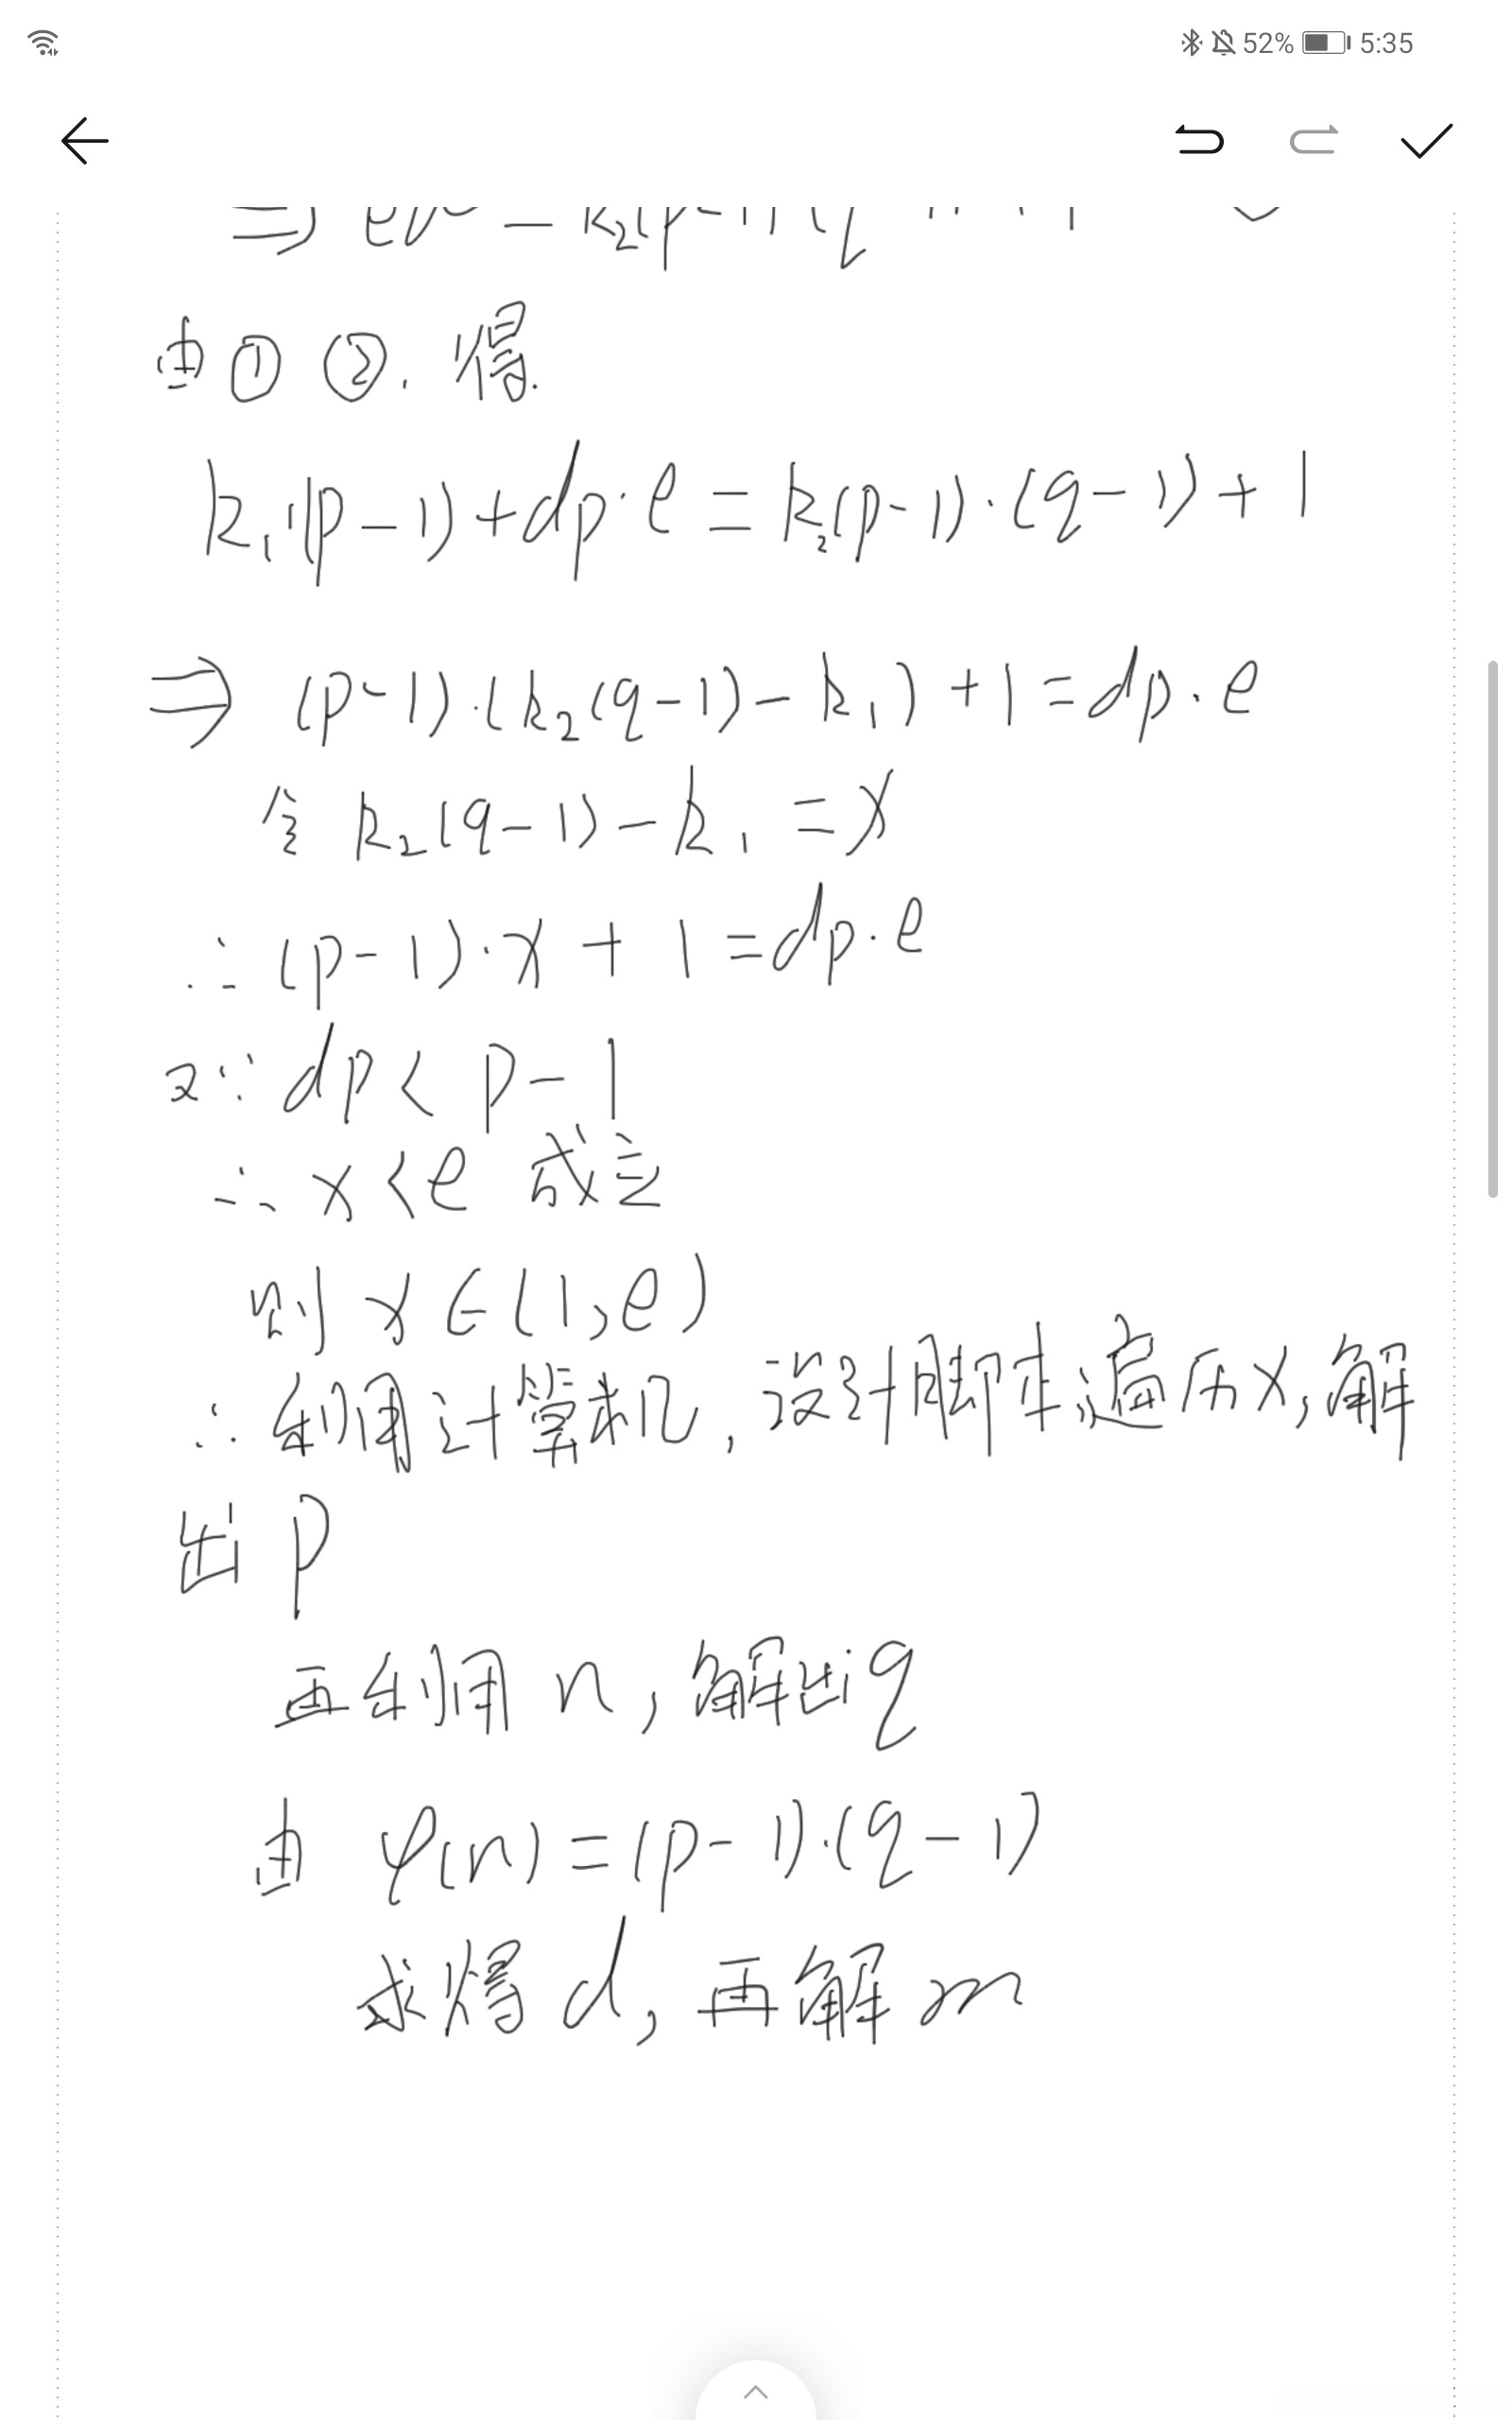 52% 5:35
由①②.得.
k₁(p-1)+dp·e=k₂(p-1)·(q-1)+1
⇒ (p-1)·(k₂(q-1)-k₁)+1=dp·e
令 k₂(q-1)-k₁=x
∴ (p-1)·x+1=dp·e
又∵ dp< p-1
∴ x<e 成立
则 x∈(1,e)
∴ 利用计算机,设计脚本遍历x,解
出 p
再利用 n,解出q
由 φ(n)=(p-1)·(q-1)
求得 d,再解 m